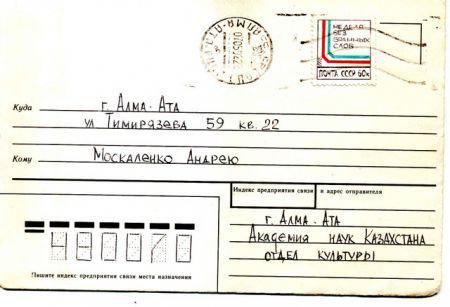 НЕДЕЛЯ
БЕЗ
БРАННЫХ
СЛОВ
ПОЧТА СССР 60к
Куда г. Алма-Ата
ул Тимирязева 59 кв. 22
Кому Москаленко Андрею
Индекс предприятия связи и адрес отправителя
г. Алма-Ата
Академия наук Казахстана
отдел культуры
480070
Пишите индекс предприятия связи места назначения